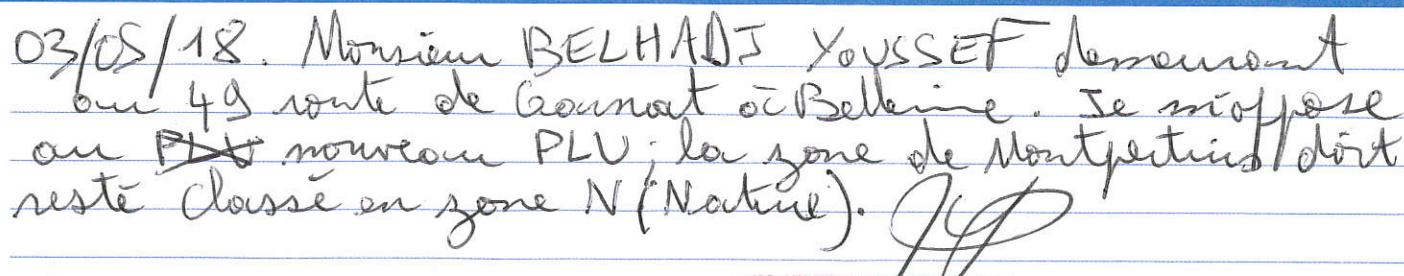 03/05/18. Monsieur BELHADJ YOUSSEF demeurant
au 49 route de Gannat à Bellerive. Je m'oppose
au PLU nouveau PLU, la zone de Montpertuis doit
resté classé en zone N (Nature).